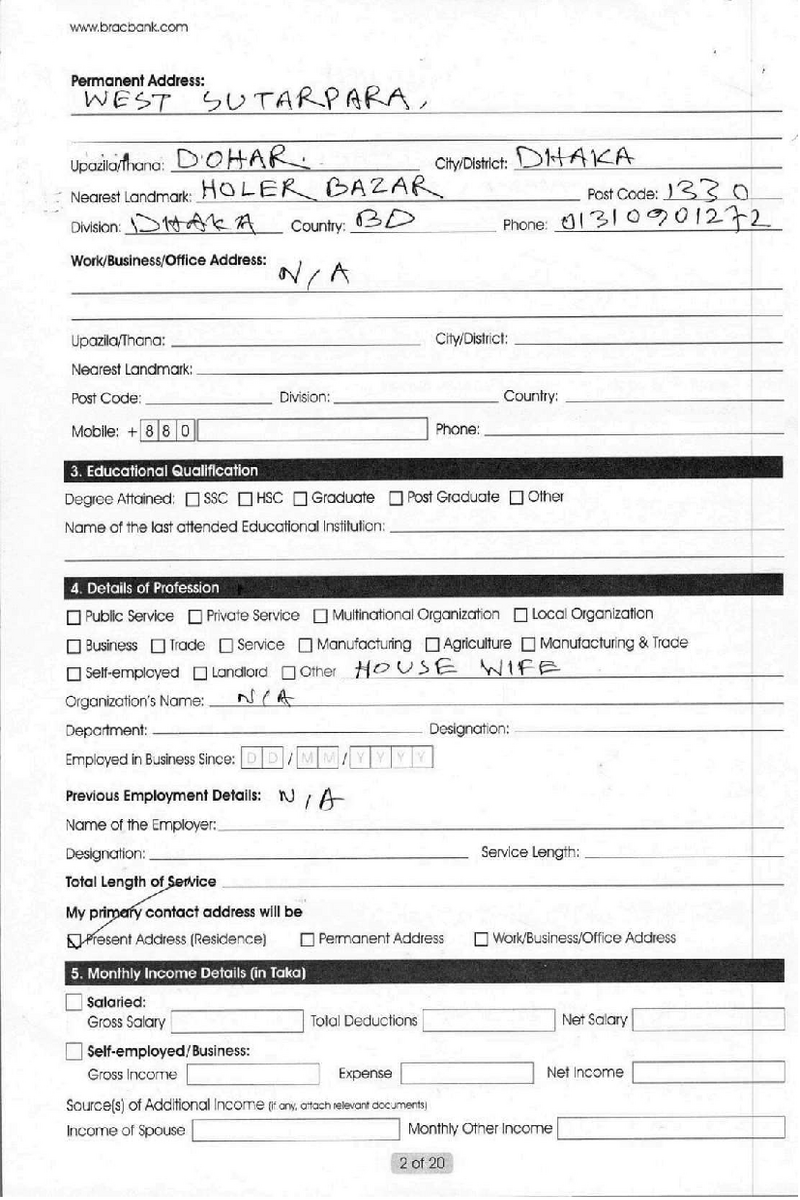 www.bracbank.com
Permanent Address:
WEST SUTARPARA,
Upazila/Thana: DOHAR. City/District: DHAKA
Nearest Landmark: HOLER BAZAR Post Code: 1330
Division: DHAKA Country: BD Phone: 01310901272
Work/Business/Office Address:
N/A
Upazila/Thana: City/District:
Nearest Landmark:
Post Code: Division: Country:
Mobile: +880 Phone:
3. Educational Qualification
Degree Attained: ☐ SSC ☐ HSC ☐ Graduate ☐ Post Graduate ☐ Other
Name of the last attended Educational Institution:
4. Details of Profession
☐ Public Service ☐ Private Service ☐ Multinational Organization ☐ Local Organization
☐ Business ☐ Trade ☐ Service ☐ Manufacturing ☐ Agriculture ☐ Manufacturing & Trade
☐ Self-employed ☐ Landlord ☐ Other HOUSE WIFE
Organization's Name: N/A
Department: Designation:
Employed in Business Since: DD/MM/YYYY
Previous Employment Details: N/A
Name of the Employer:
Designation: Service Length:
Total Length of Service
My primary contact address will be
☑ Present Address (Residence) ☐ Permanent Address ☐ Work/Business/Office Address
5. Monthly Income Details (in Taka)
☐ Salaried:
Gross Salary Total Deductions Net Salary
☐ Self-employed/Business:
Gross Income Expense Net Income
Source(s) of Additional Income (if any, attach relevant documents)
Income of Spouse Monthly Other Income
2 of 20